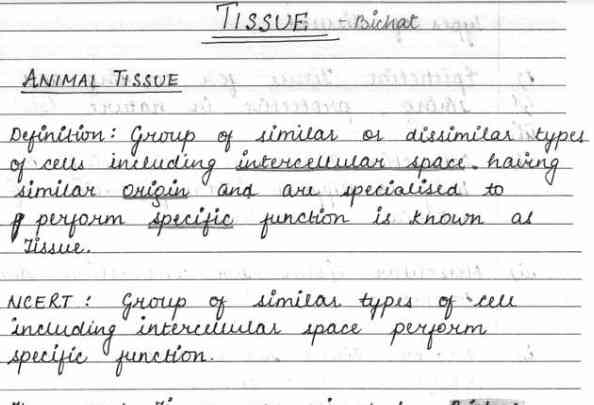 TISSUE - Bichat
ANIMAL TISSUE
Definition : Group of similar or dissimilar types
of cells including intercellular space having
similar origin and are specialised to
perform specific function is known as
Tissue.
NCERT : Group of similar types of cell
including intercellular space perform
specific function.